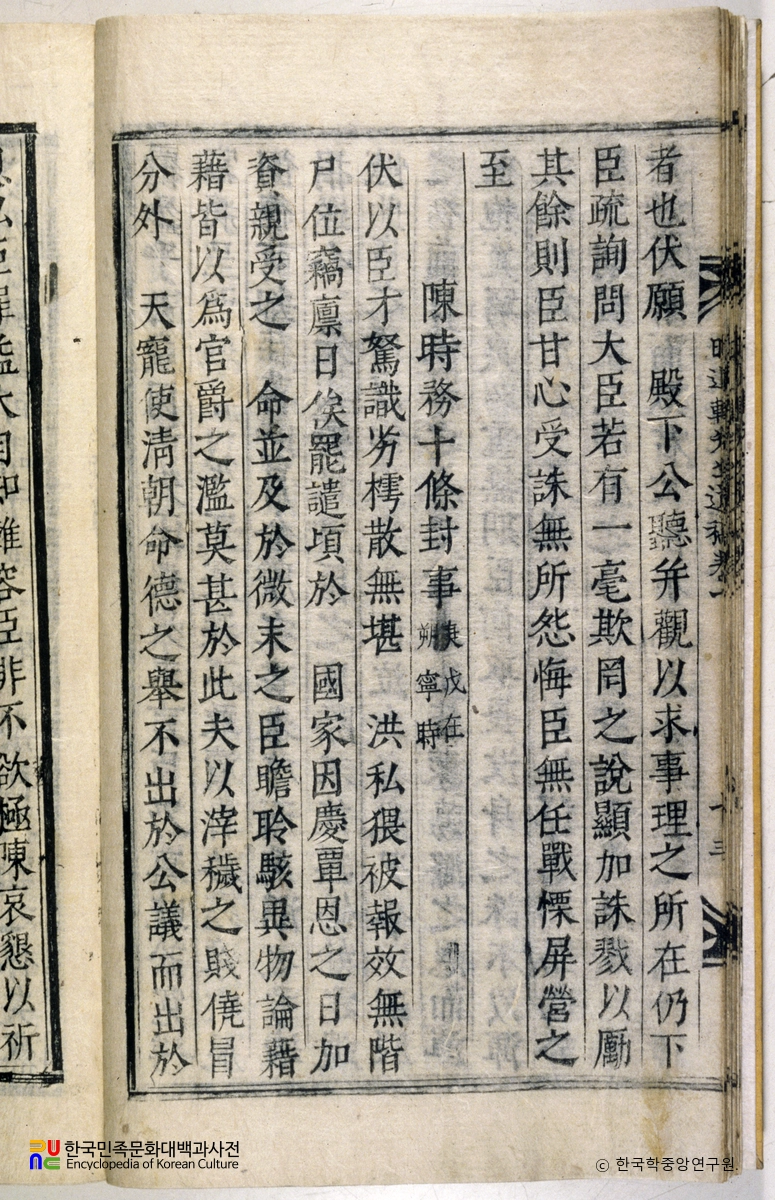 者也伏願 殿下公聽幷觀以求事理之所在仍下
臣疏詢問大臣若有一毫欺罔之說顯加誅戮以勵
其餘則臣甘心受誅無所怨悔臣無任戰慄屛營之
至
陳時務十條封事 庚戌在朔寧時
伏以臣才駑識劣樗散無堪 洪私猥被報效無階
尸位竊廩日俟罷譴頃於 國家因慶覃恩之日加
資親受之 命並及於微末之臣瞻聆駭異物論藉
藉皆以爲官爵之濫莫甚於此夫以滓穢之賤僥冒
分外 天寵使淸朝命德之擧不出於公議而出於
臣罪
大自知難容臣非不欲極陳哀懇以祈
한국민족문화대백과사전
Encyclopedia of Korean Culture
© 한국학중앙연구원.